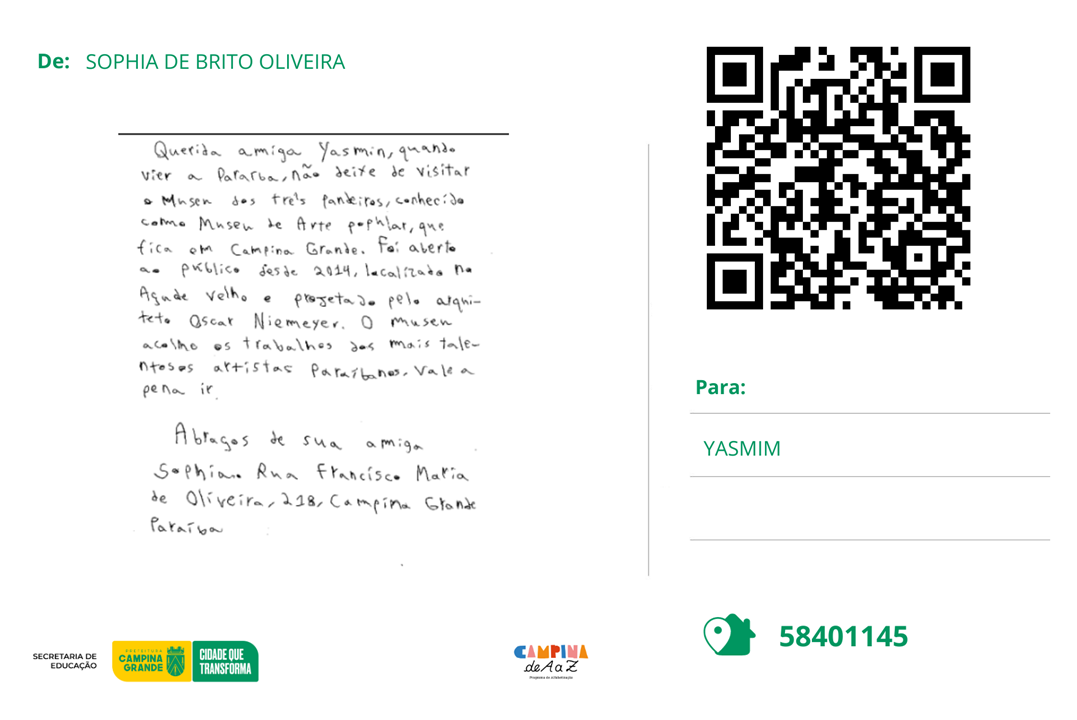 De: SOPHIA DE BRITO OLIVEIRA
Querida amiga Yasmin, quando
vier a Paraíba, não deixe de visitar
o Museu dos três Pandeiros, conhecido
como Museu de Arte pophlar, que
fica em Campina Grande. Foi aberto
ao público desde 2014, localizado no
Açude velho e projetado pelo arqui-
teto Oscar Niemeyer. O museu
acolho os trabalhos dos mais tale-
ntosos artistas Paraíbanos. Vale a
pena ir.
Abraços de sua amiga
Sophia. Rua Francisco Maria
de Oliveira, 218, Campina Grande
Paraíba
Para:
YASMIM
58401145
SECRETARIA DE
EDUCAÇÃO
PREFEITURA
CAMPINA
GRANDE
CIDADE QUE
TRANSFORMA
CAMPINA
de A a Z
Programa de Alfabetização